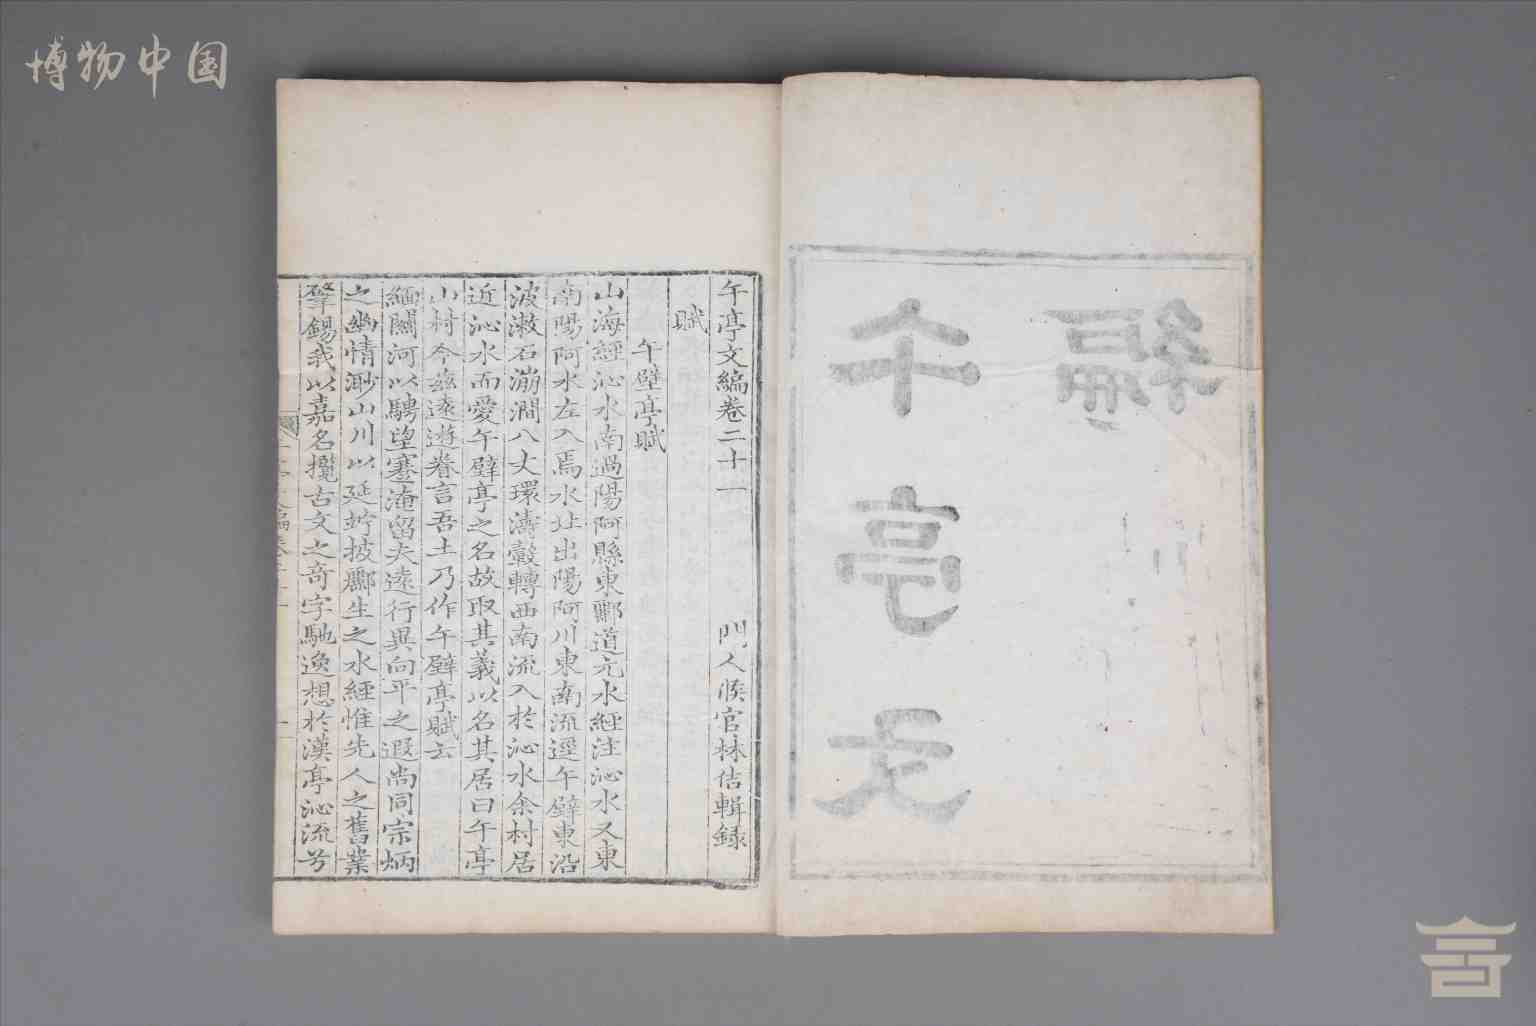 博物中国
午亭文
編
午亭文編卷二十一　門人候官林佶輯録
賦
午壁亭賦
山海經沁水南過陽阿縣東酈道元水經注沁水又東
南陽阿水左入焉水北出陽阿川東南流逕午壁東沿
波漱石漰澗八丈環濤轂轉西南流入於沁水余村居
近沁水而愛午壁亭之名故取其義以名其居曰午亭
山村今茲遠遊眷言吾土乃作午壁亭賦云
緬關河以騁望蹇淹留夫遠行異向平之遐尚同宗炳
之幽情渺山川以延竚披酈生之水經惟先人之舊業
肈錫我以嘉名攬古文之奇字馳逸想於漢亭沁流兮